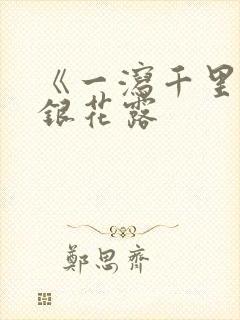 《一瀉千里
銀花露
鄭思齊